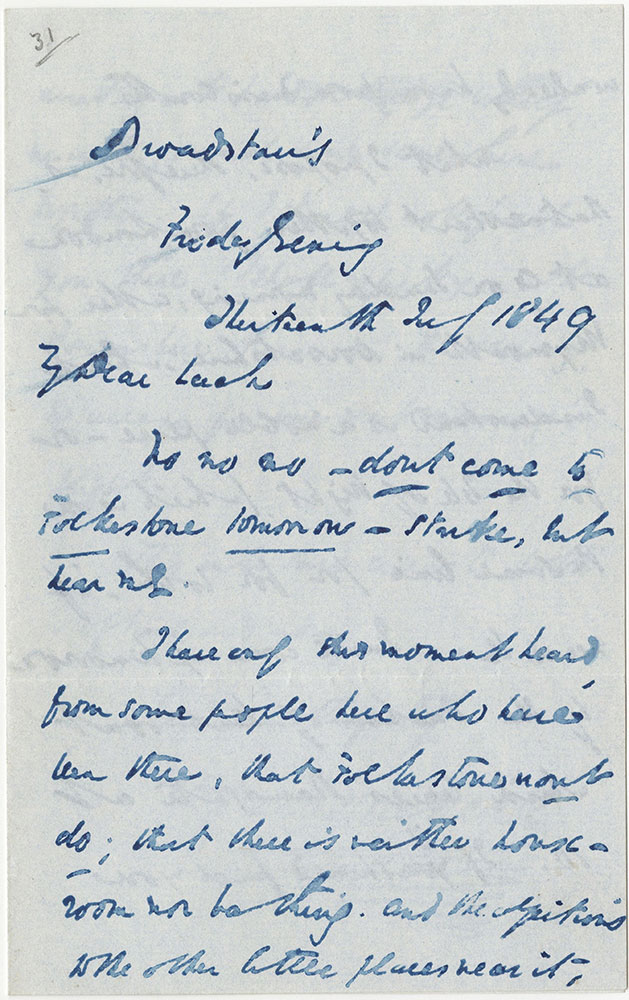 31
Broadstairs
Friday Evening
Thirteenth July 1849
My Dear Leech
No no no – dont come to
Folkestone tomorrow – Strike, but
hear me.
I have only this moment heard,
from some people here who have
been there, that Folkestone wont
do; that there is neither house–
room nor bathing. and the objection is
to the other little places near it,